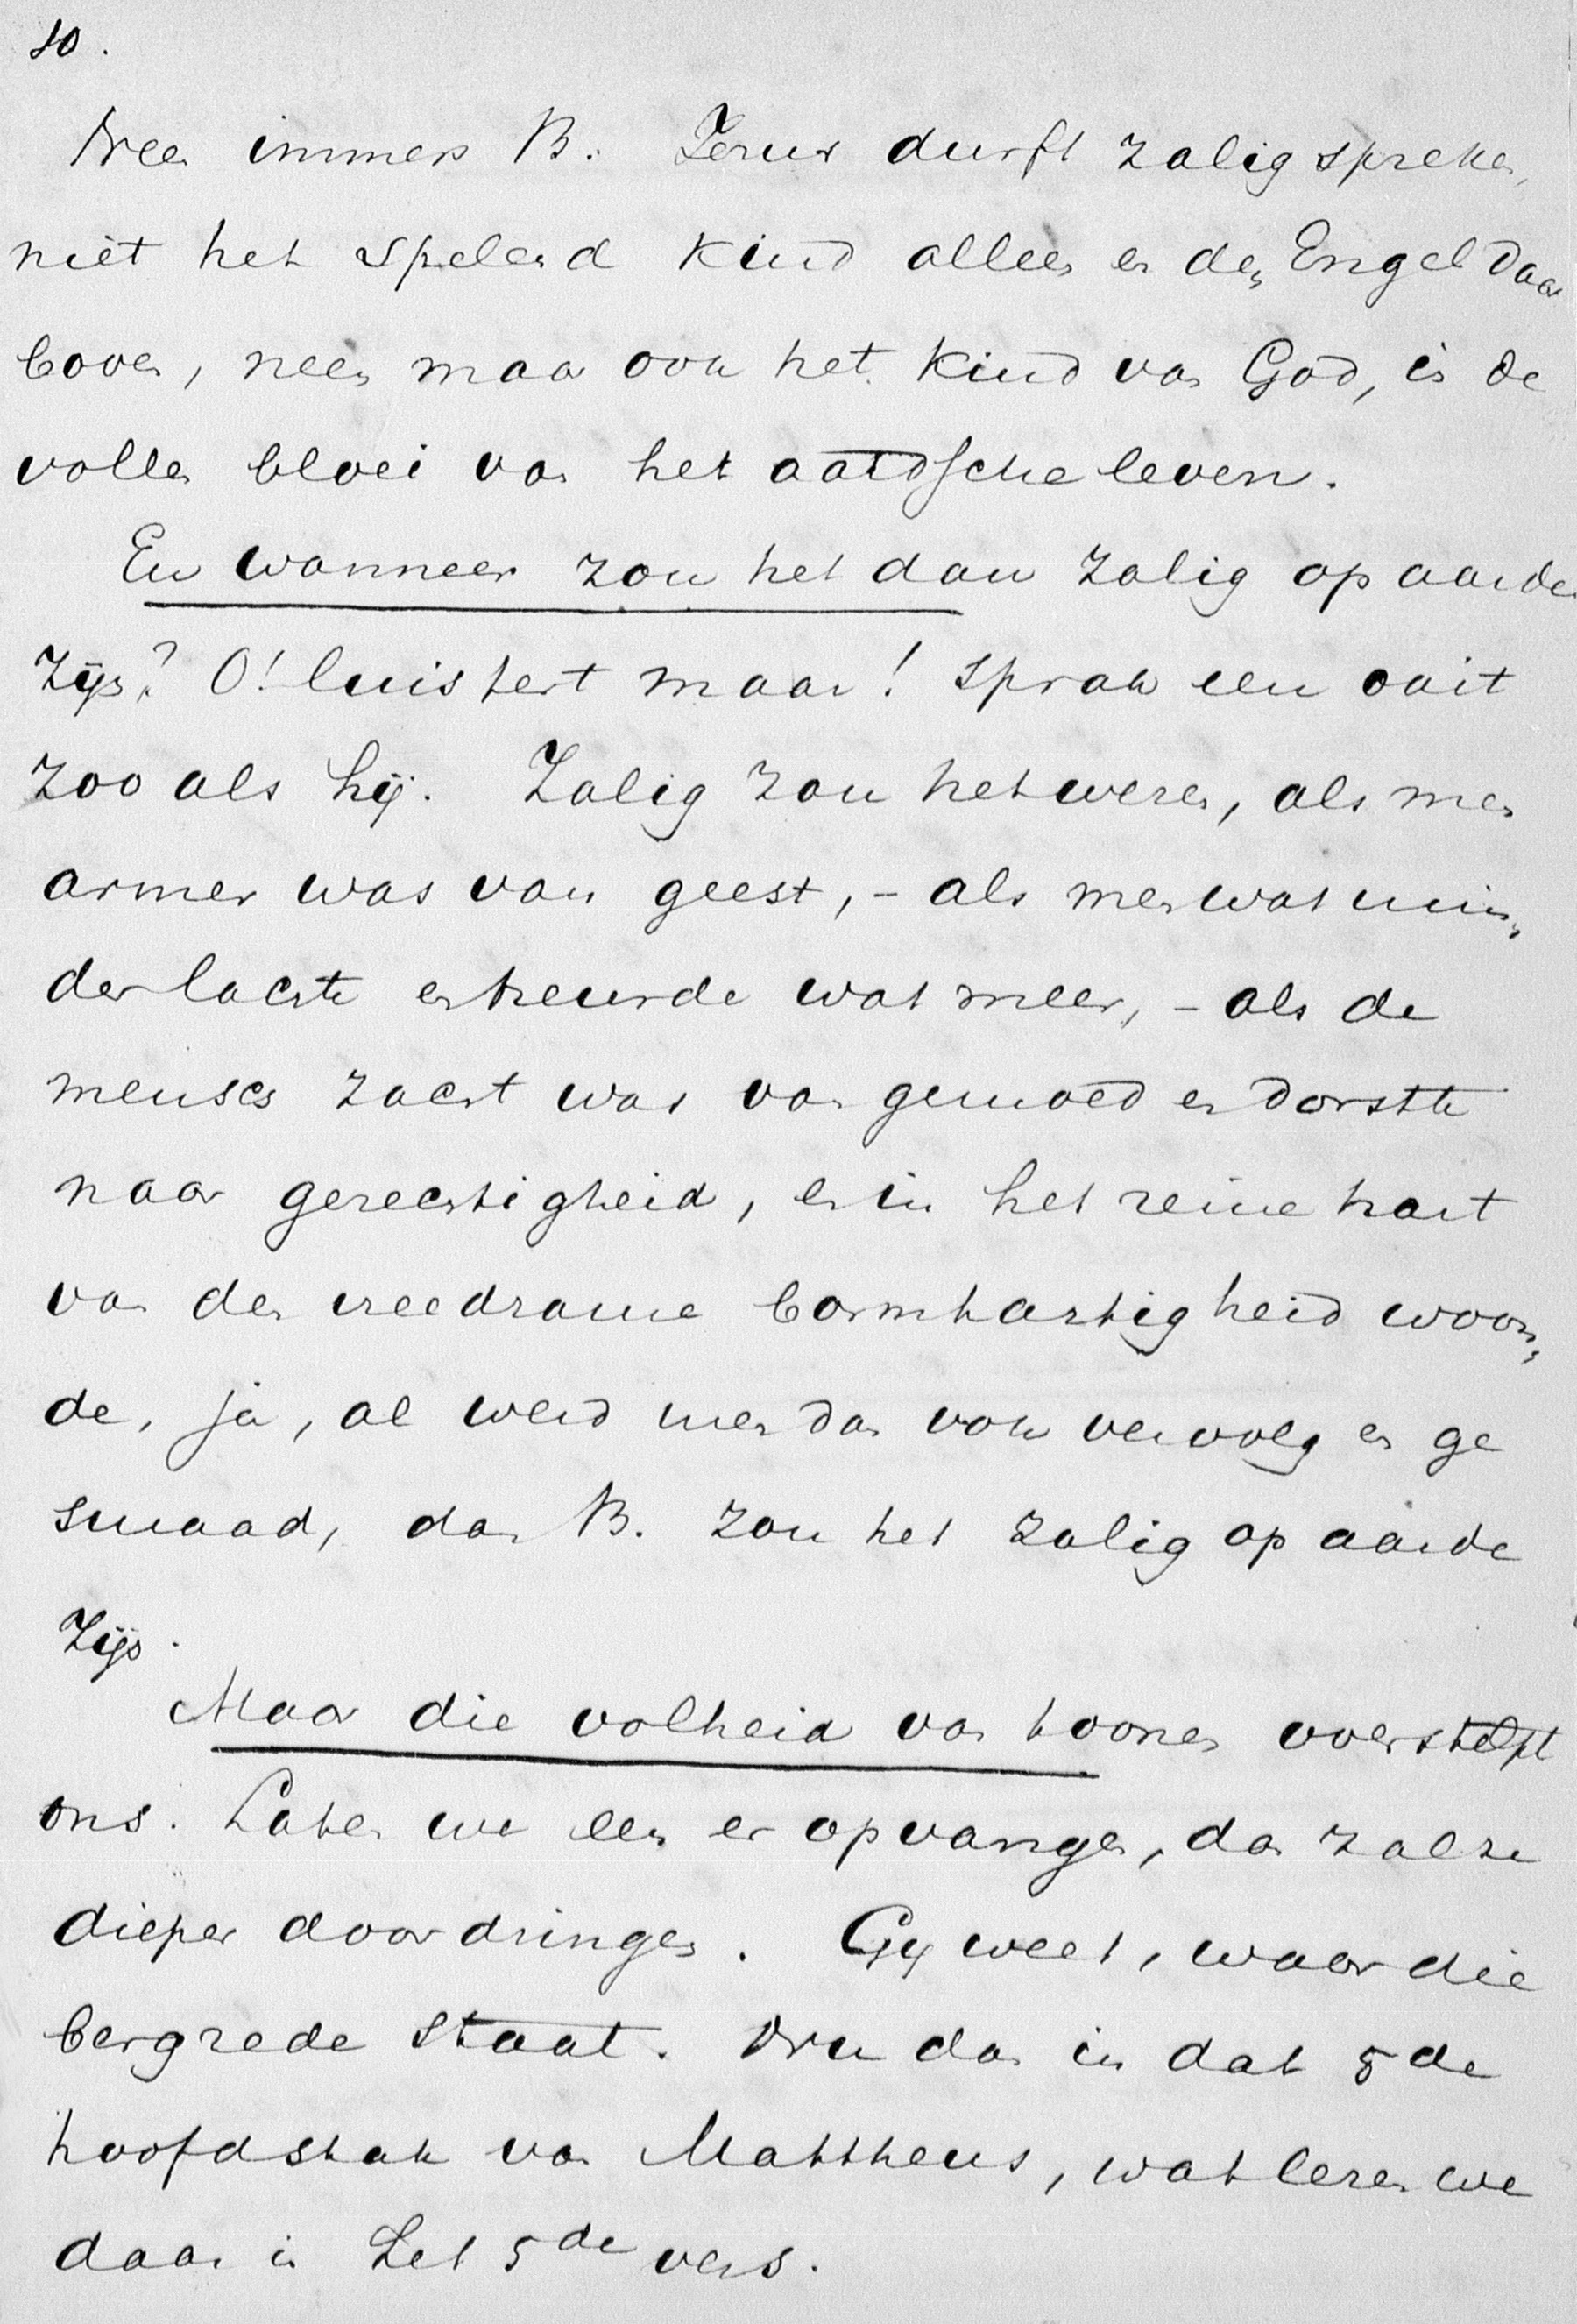 10.
Nee immers B. Jezus durft zalig spreken,
niet het spelend kind alleen en den Engel daar
boven, neen maar ook het kind van God, in de
vollen bloei van het aardsche leven.
En wanneer zou het dan zalig op aarde
zijn? O! luistert maar! Sprak een ooit
zoo als hij. Zalig zou het wezen, als men
armer was van geest, - als men wat min„
der lachte en treurde wat meer, - als de
mensch zacht was van gemoed en dorstte
naar gerechtigheid, en in het reine hart
van den vreedzame barmhartigheid woon„
de, ja, al werd men dan ook vervolg en ge
smaad, dan B. zou het zalig op aarde
zijn.
Maar die volheid van toonen overstelpt
ons. Laten we een er opvangen, dan zal ze
dieper doordringen. Gij weet, waar die
bergrede staat. Nu dan in dat 5de
hoofdstuk van Mattheus, wat lezen we
daar in het 5de vers.